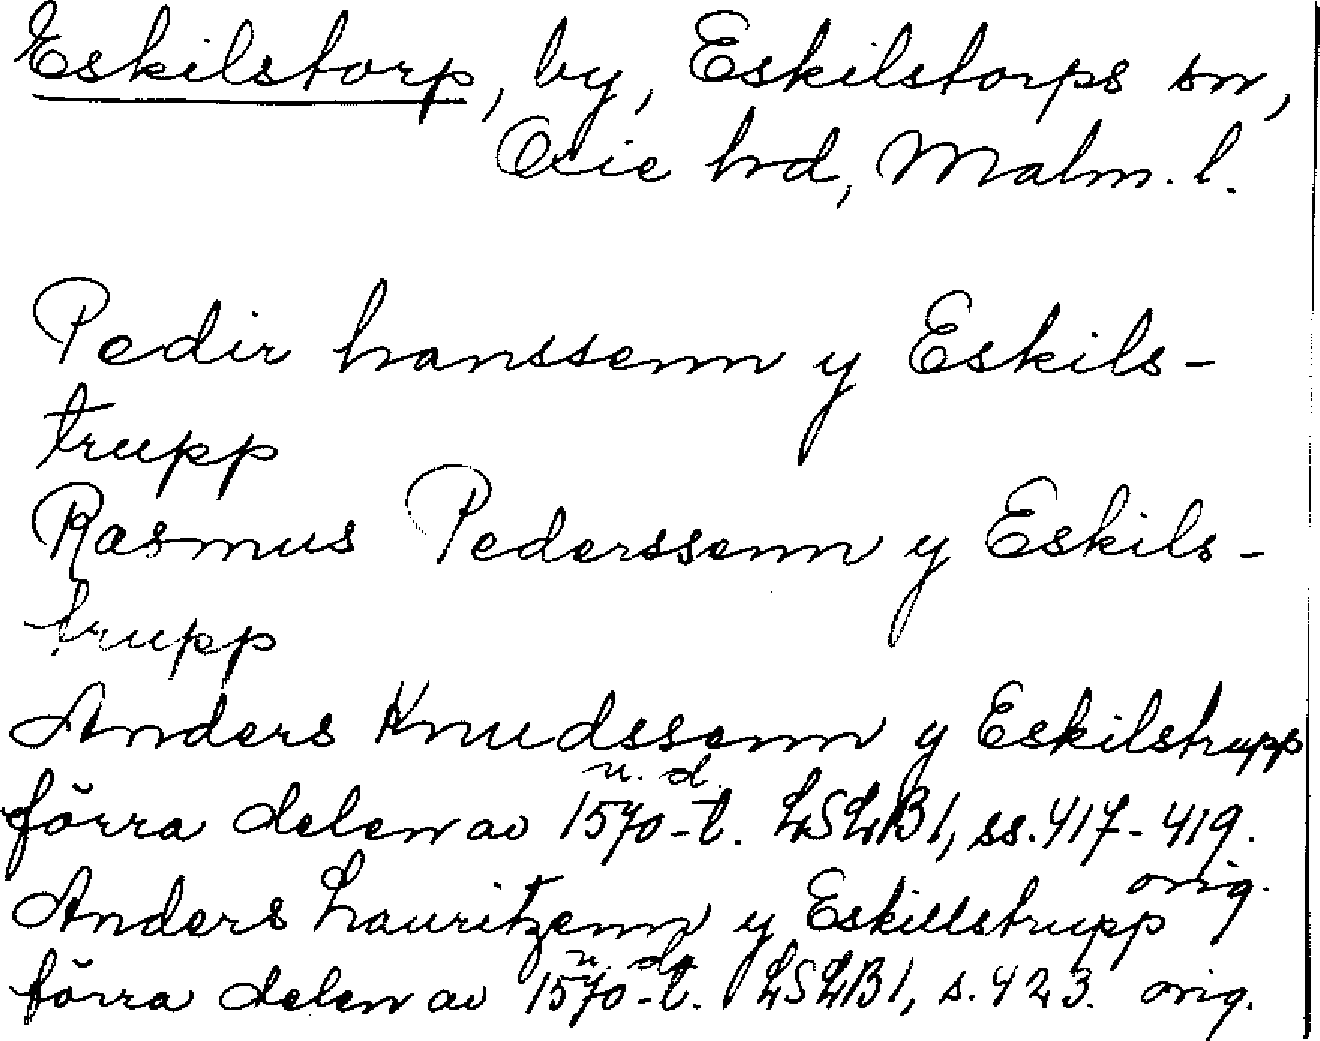 Eskilstorp, by, Eskilstorps sn,
Oxie hrd, Malm. l.
Pedir hanssenn y Eskils-
trupp
Rasmus Pederssenn y Eskils-
trupp
Anders Knudssenn y Eskilstrupp
u. d
förra delen av 1570-t. LSLB1, ss. 417-419.
orig.
Anders Lauritzenn y Eskillstrupp
u. d
förra delen av 1570-t. LSLB1, s. 423. orig.